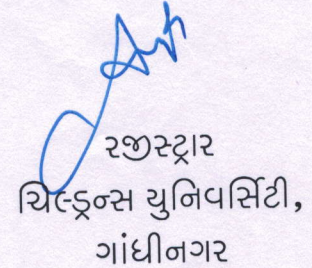 રજીસ્ટ્રાર
ચિલ્ડ્રન્સ યુનિવર્સિટી,
ગાંધીનગર